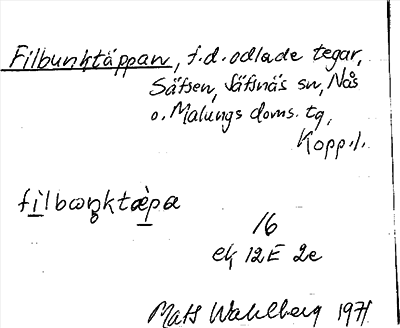 Filbunktäppan, f.d. odlade tegar,
Säfsen, Säfsnäs sn, Nås
o. Malungs doms. tg,
Kopp.l.
filboŋktæ̀pa
16
ek 12E 2e
Mats Wahlberg 1971